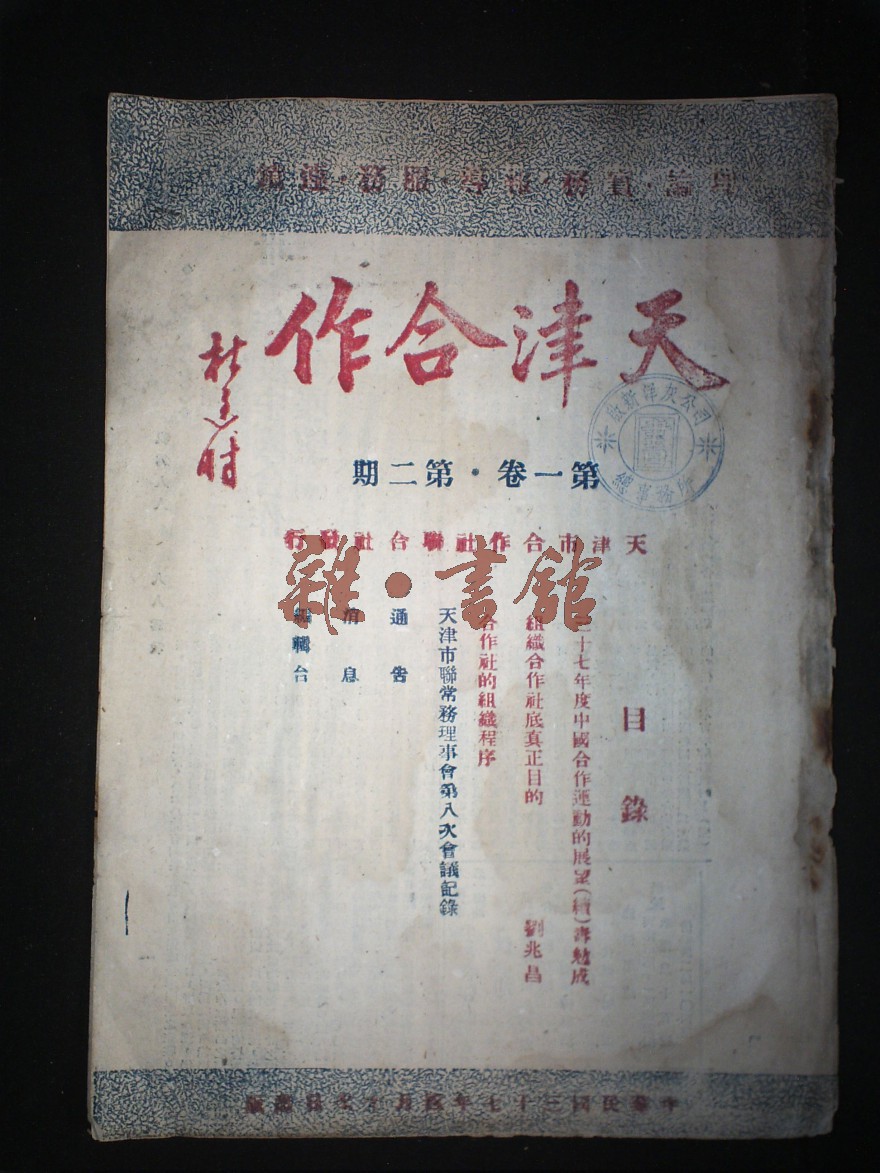 理論・實務・報導・服務・
天津合作
杜建時
第一卷・第二期
啟新洋灰公司
總事務所
天津市合作社聯合社發行
雜・書館
目錄
三十七年度中國合作運動的展望(續) 壽勉成
組織合作社底真正目的 劉兆昌
合作社的組織程序
天津市聯常務理事會第八次會議記錄
通告
消息
編輯台
中華民國三十七年四月十五日出版